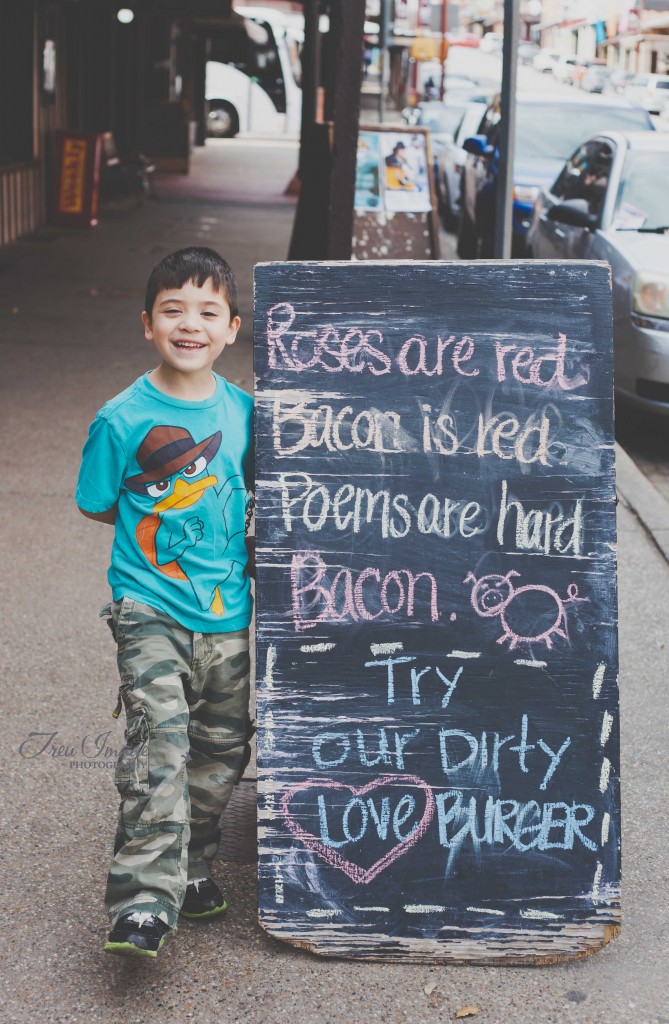 Roses are red
Bacon is red
Poems are hard
Bacon.
Try
our Dirty
Love BURGER
PHOTOGRAPHY